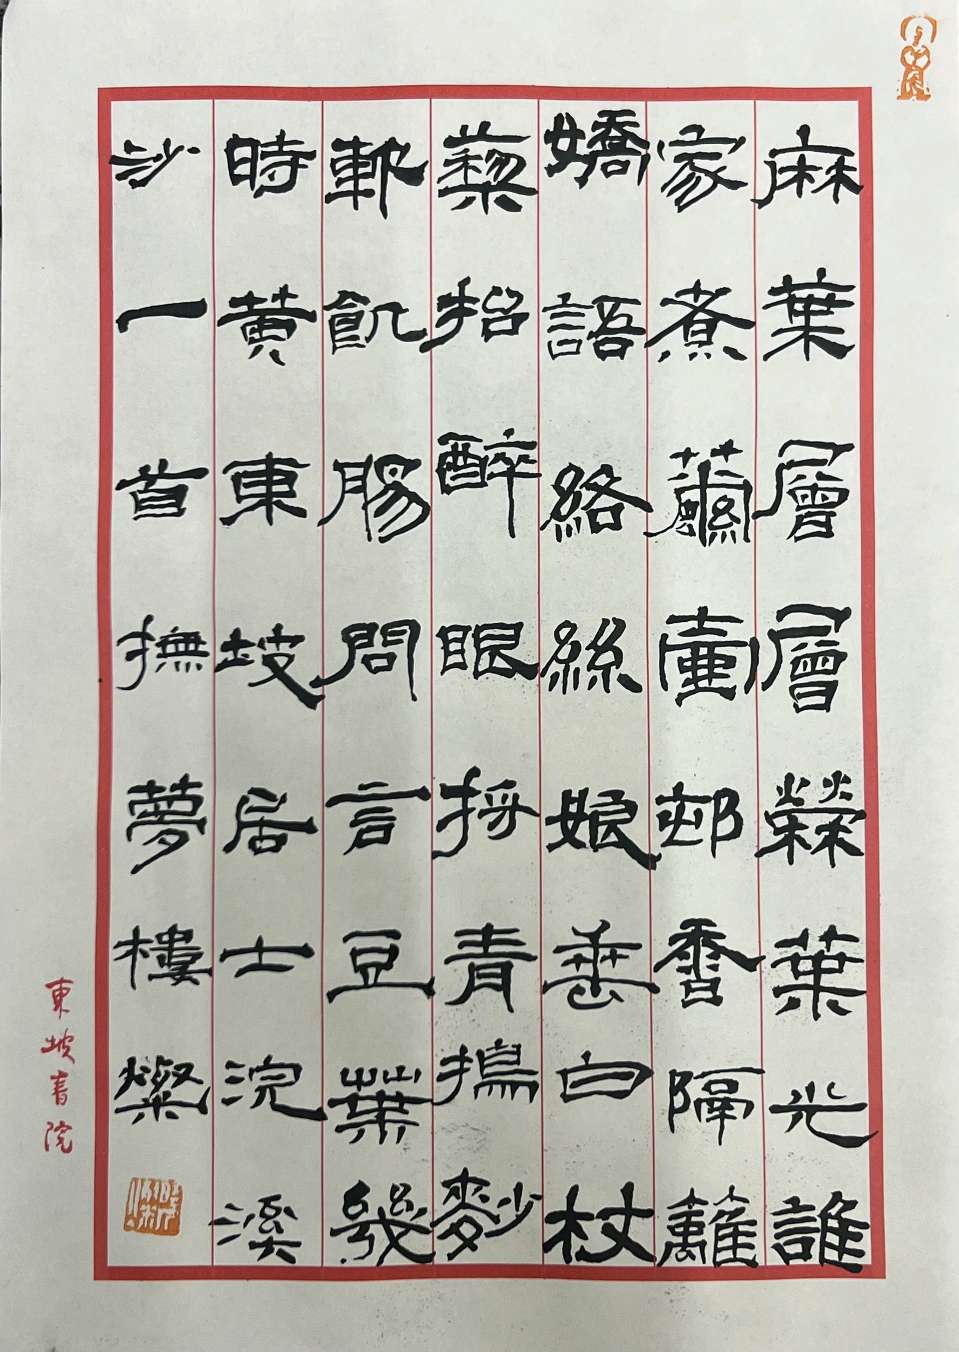 麻葉層層檾葉光誰
家煮繭一村香隔籬
嬌語絡絲娘垂白杖
藜抬醉眼捋青擣麨
軟飢腸問言豆葉幾
時黃東坡居士浣溪
沙一首撫夢樓燦
東坡書院